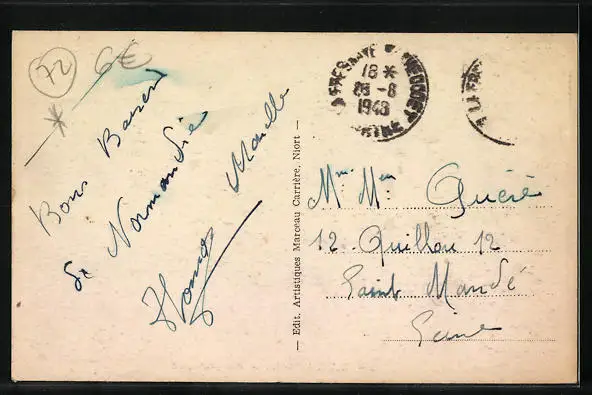 72
6€
Bons Baisers
de Normandie
Marcelle
— Edit. Artistiques Marceau Carrière, Niort —
18 *
28 -8
1948
A LA
Mr Mme Quéré
12 Quillou 12
Saint Mandé
Seine